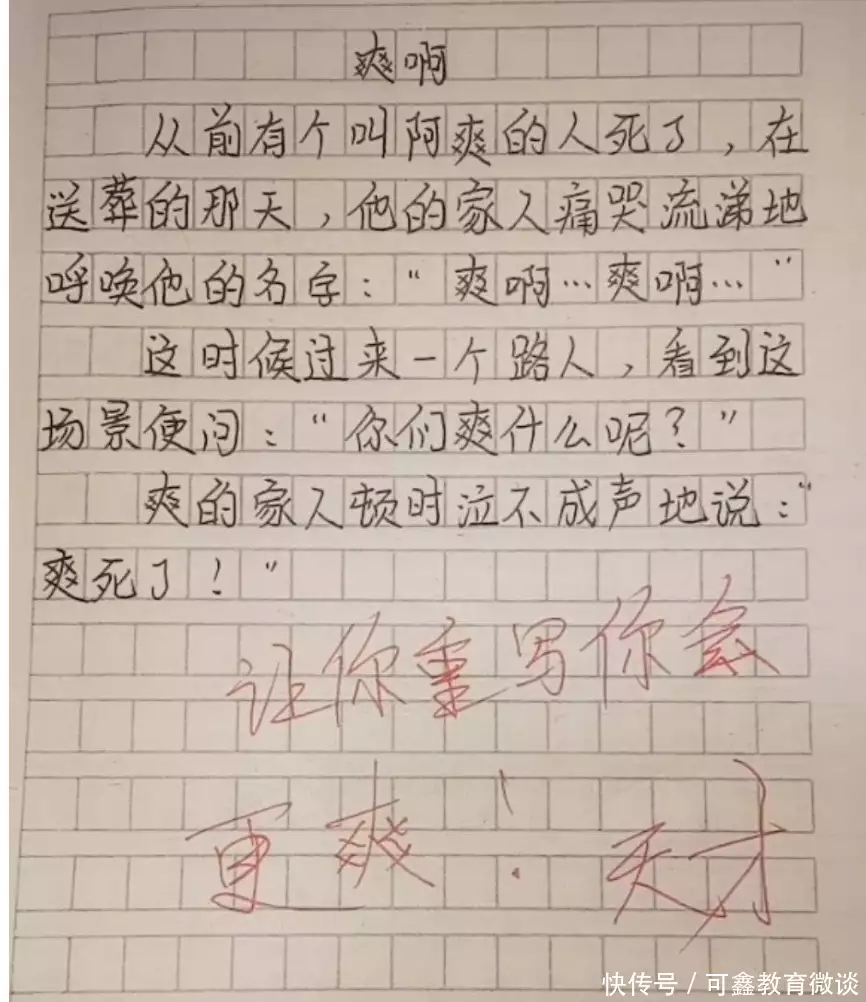 爽啊
从前有个叫阿爽的人死了，在
送葬的那天，他的家人痛哭流涕地
呼唤他的名字：“爽啊…爽啊…”
这时候过来一个路人，看到这
场景便问：“你们爽什么呢？”
爽的家人顿时泣不成声地说：“
爽死了！”
让你重写你会
更爽！天才
快传号/可鑫教育微谈